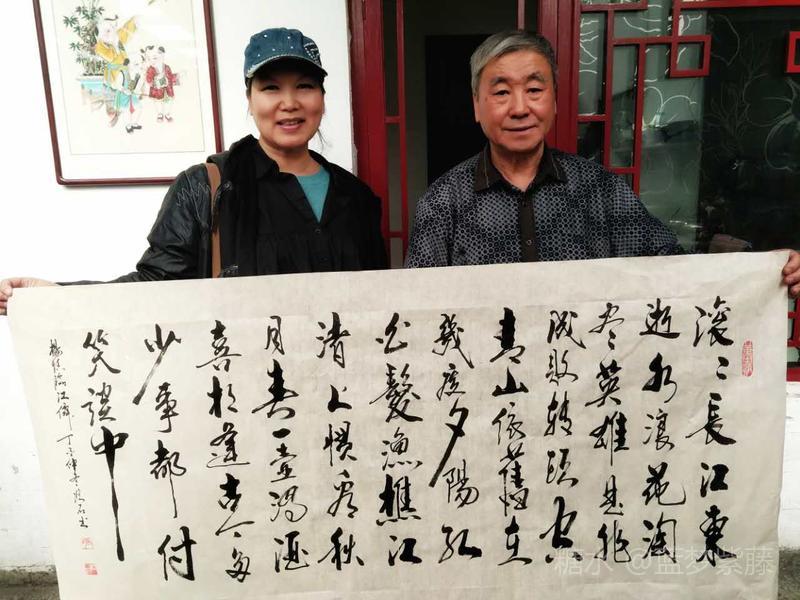 滚滚長江東
逝水浪花淘
尽英雄是非
成败转头空
青山依舊在
幾度夕陽红
白髮渔樵江
渚上惯看秋
月春一壶浊酒
喜相逢古今多
少事都付
笑谈中
杨慎临江仙 丁酉仲 石书
糖水 @蓝梦紫藤